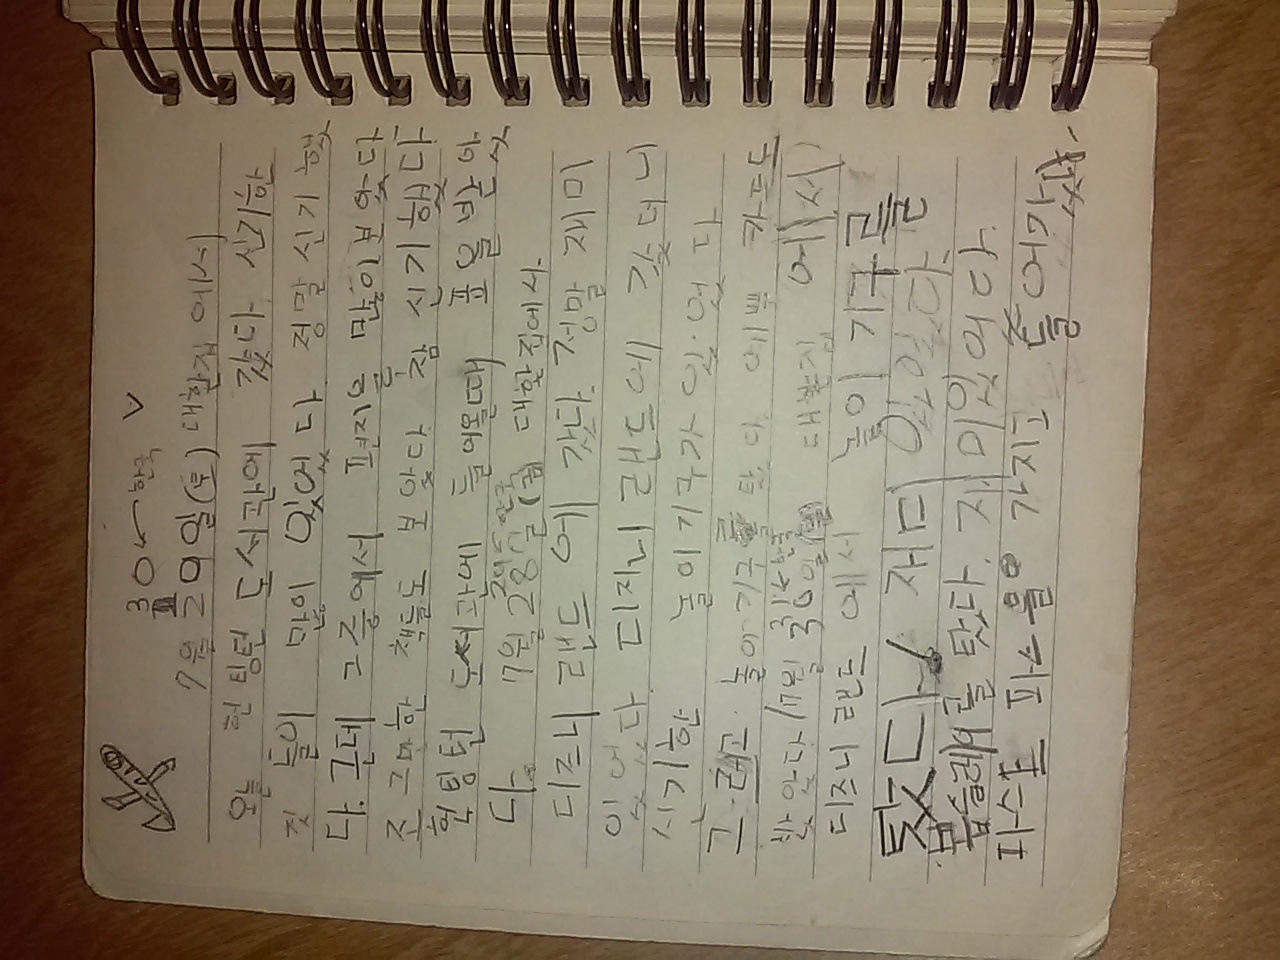 30 ← 한국 V
7월 29일(토) 대한집 에서
오늘 헌팅턴 도서관에 갔다. 신기한
것 들이 많이 있었다. 정말 신기 했
다. 근데 그중에서 편지을 많이보았다
조그만한 책들도 보았다. 참 신기했다
헌팅턴 도서관에 들어올때 표을받았
다. 7월 28일(금) 대한집에서.
29 ← 한국
디즈니 랜드 에 갔다. 정말 재미
있었다. 디지니랜드에 갔더니
신기한 놀이기구가 있었다
그리고 놀이기구를 탔다. 예쁜 카드도
받았다/7월 30일 대한집 에서
31 ← 한국
디즈니 랜드 에서 놀이 기구를
탔다! 재미 있었다.
봅슬레이를 탔다. 재미있었다.
파스트 파스을 가지고 들어갔